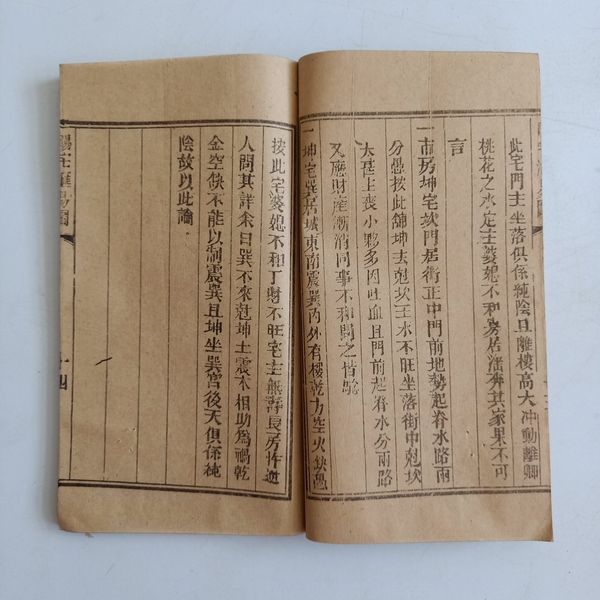 此宅門主坐落俱係純陰且離樓高大冲動離卿
桃花之水定主婆媳不和男居潘奔其家果不可
言
一市房坤宅坎門居街正中門前地勢起脊水路兩
分愚按此舖坤去尅坎主水不旺坐落街中尅坎
大甚上喪小夥多因吐血且門前起脊水分兩路
又應財産漸消同事不和問之皆驗
一坤宅巽居城東南震巽内外有樓乾方空火缺愚
按此宅婆媳不和丁財不旺宅主無壽長房忤逆
人問其詳余曰巽木來尅坤土震木相助為禍乾
金空缺不能以制震巽且坤坐巽宮後天俱係純
陰故以此論
十四